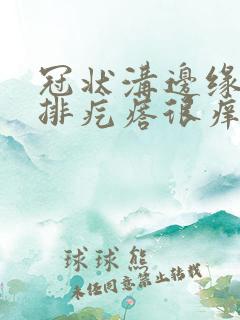 冠状溝邊缘
排疙瘩很痒
球球熊
未经同意禁止转载